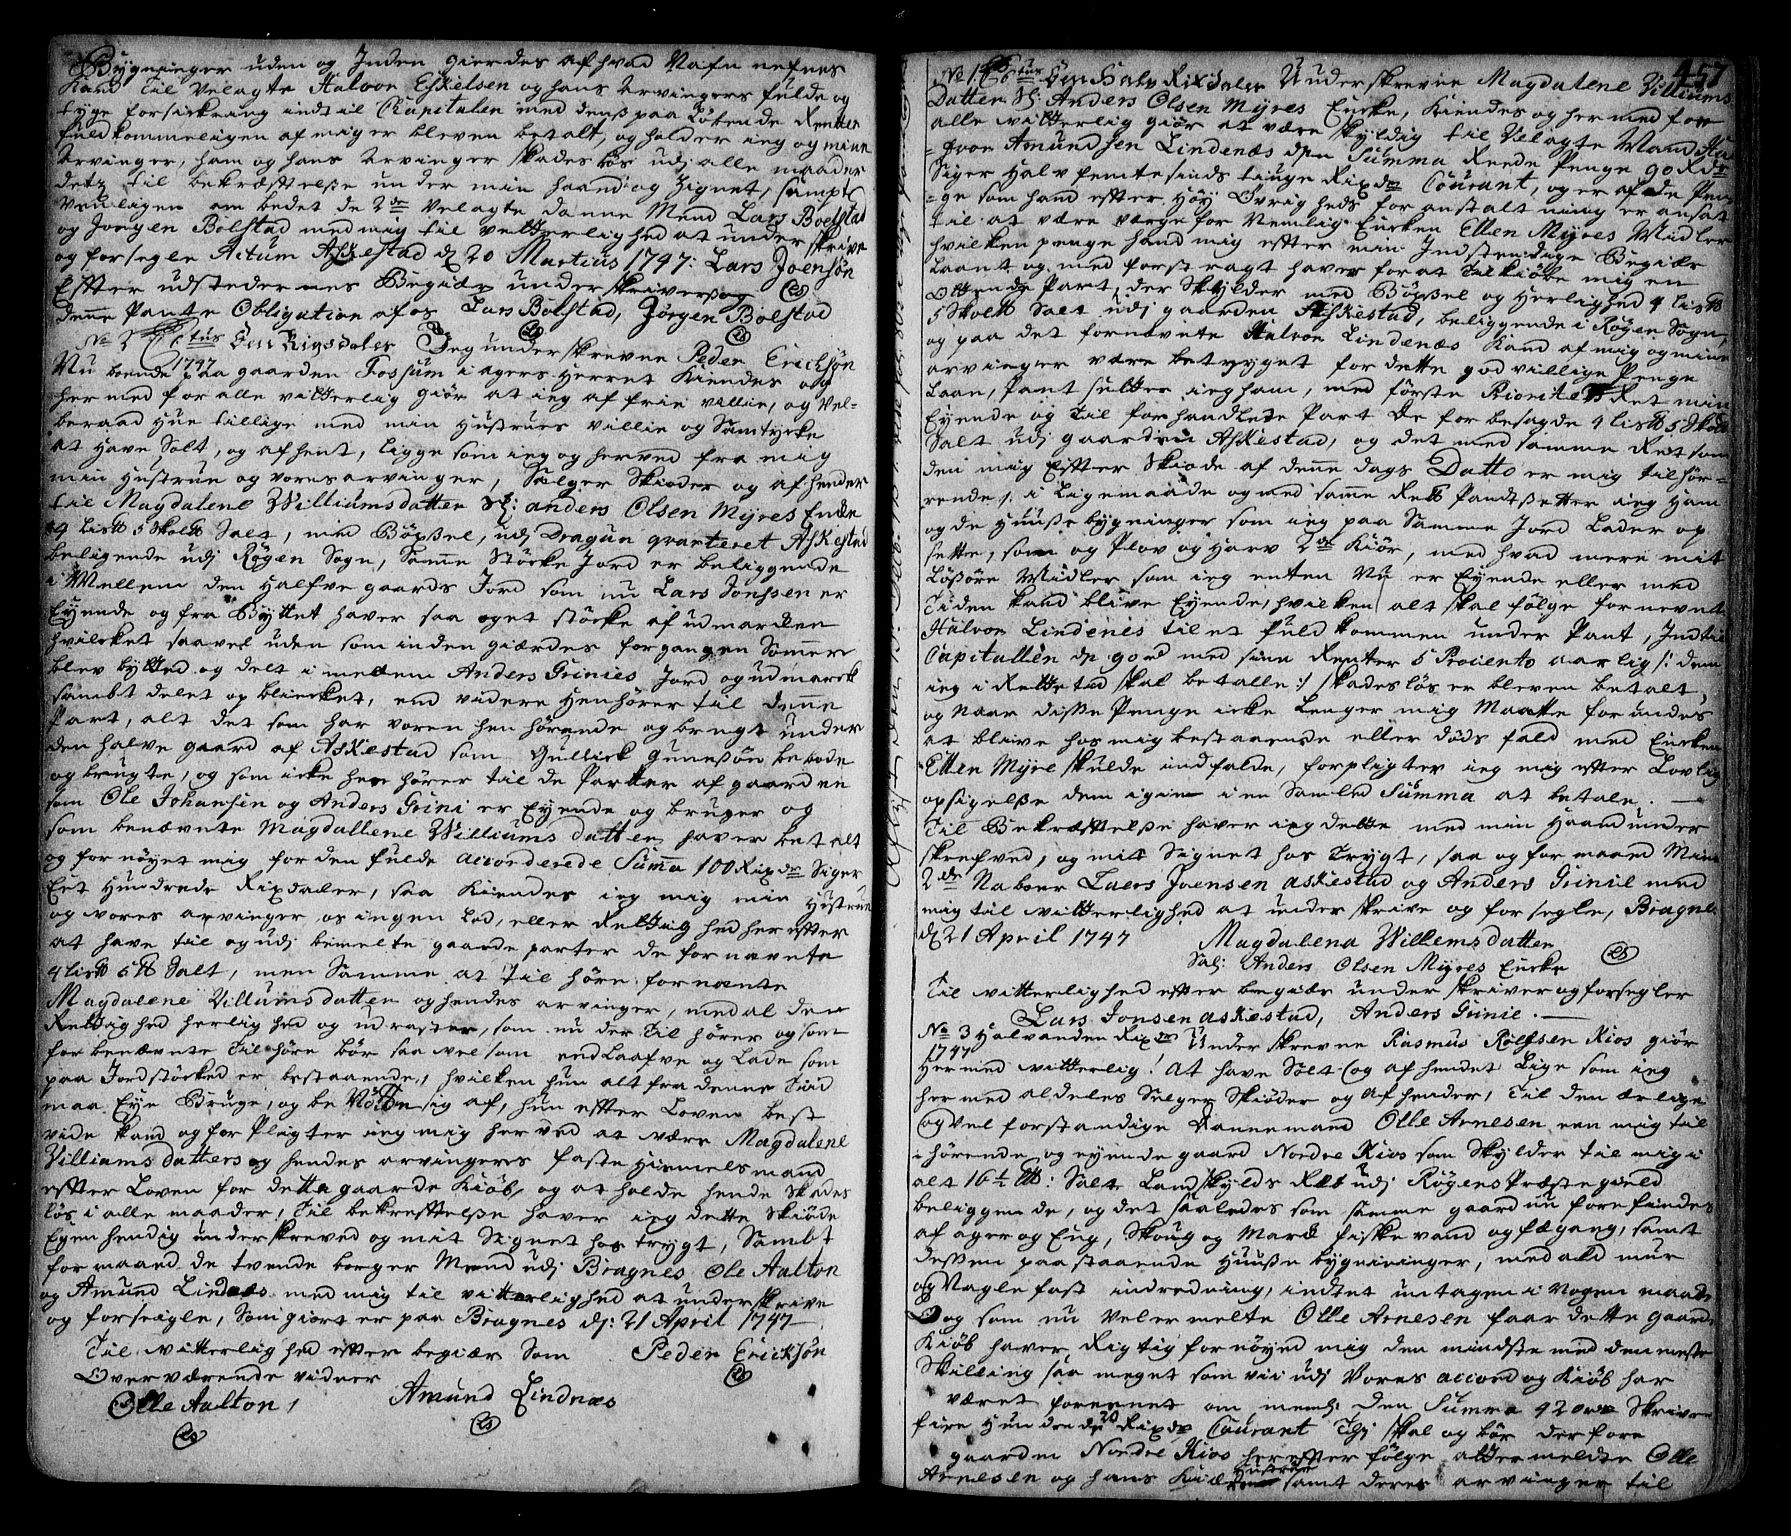 Bygninger uden og Inden gierdes af hvad Nafn nefnes
kand til Velagte Halvor Eskelsen og hans Arvingers fulde og
trye forsickring indtil Capitalen med dens paa Løbende Renter
fuldkommeligen af mig er bleven betalt, og holder ieg og mine
Arvinger, ham og hans Arvinger skadesløs udj alle maader
dets til bekræfttelsse under min haand og Zignet, sampt
venligen ombedet de 2de Velagte danne Mend Lars Bolstad
og Jørgen Bølstad med mig til vitterlighed at underskrive
og forsegle Actum Askestad d 20 Martius 1747: Lars Joensøn
Effter udstedernes Begiær underskriver og
denne Pante Obligation af os Lars Bolstad, Jørgen Bolstad
No 2 1747 Een Rigsdaler Jeg underskrevne Peder Ericksøn
Nu boende paa gaarden Fossum i agers Herret Kiendes og
hermed for alle vitterlig giør at ieg af frie villie, og vel-
beraad Hue tillige med min Hustrues villie og Samtycke
at Have Solt, og afhent, ligge som ieg og herved fra mig
min Hustrue og vores arvinger, Sælger Skiøder og afhender
til Magdalene Williumsdatten Sl: anders Olsen Myres Enke
4 lisll 5 Skoll Salt, med Bøxsel, udj Dragun qvarteret Askestad
beligende udj Røgen Sogn, Samme Støcke Jord er beliggende
i Mellem den Halfve gaards Jord som nu Lars Jonssen er
Eyende og fra Byttet haver saa oget støcke af udmarcken
hvilcket saavel uden som inden giærdes forgangen Sommer
blev byttet og delt i mellem Anders Grinies Jord og udmarck
sambt delet og blincket, end videre Henhører til denne
Part, alt det som har voren hen hørende og brugt under
den halve gaard af Askestad som Gullick Gunnesøn beboede
og brugte, og som icke hen hører til de Parter af gaarden
som Ole Johansen og Anders Grini er Eyende og bruger og
som benævnte Magdallene Williumsdatter haver betalt
og fornøyet mig for den fulde accorderede Suma 100 Rixdr Siger
Eet Hundrede Rixdaler, saa Kiendes ieg mig min Hustrue
og vores arvinger os ingen Lod, eller Rettighed her effter
at have til og udj bemelte gaarde parter de fornævnte
4 lisll 5 ll Salt, men Samme at til høre fornævnte
Magdalene Villumsdatten og hendes arvinger, med al den
Rettighed herlighed og udraster, som nu der til hører og som
for benævnte tilhøre bør saa vel som end Laafve og Lade som
paa Jordstøcked er bestaaende, hvilken hun alt fra denne Tiid
maa Eye Bruge, og be Nøtte sig af, hun effter Loven best
vide kand og for Pligter ieg mig herved at være Magdalene
Villiams datters og hendes arvingers faste Hiemmelsmand
effter Loven for dette gaarde Kiøb, og at holde hende skades
løs i alle maader, til bekræfttelsse haver ieg dette Skiøde
Egenhendig underskreved og mit Signet hos trygt, Sambt
formaaed de tvende borger Mend udj Bragnes Ole Aalton
og Amund Lindnæs med mig til vitterlighed at underskrive
og forseigle, Som giort er paa Bragnes dj: 21 April 1747
Til vitterlighed effter begiær Som Peder Ericksøn
Overværende vidner
Olle Aalton, Amund Lindnæs
457
No 1 Een Halv Rixdaler Underskrevne Magdalene Villiums
Datter Sl: Anders Olsen Myres Encke, Kiendes og hermed for
alle vitterlig giør at være skyldig til Velagte Mand Hal
-fvor Amundsen Lindenæs den Summa Reede Penge 90 Rdr
Siger Halvfemtesinds tiuge Rixdr Courant, og er af de Pen
-ge som hand effter Høy Øvrigheds foranstaltning er ansat
til at være værge for Nemlig Encken Ellen Myres Midler
hvilken penge hand mig effter min Indstændige Begiær
Laant og med forstragt haver for at tilkiøbe mig en
Ottende Part, der Skylder med Bøxsel og Herlighed 4 lisll
5 Skoll Salt udj gaarden Askestad, beliggende i Røgen Sogn
og paa det fornævnte Halvor Lindenæs kand af mig og mine
arvinger være betrygget for dette godvillige Penge
Laan, Pantsetter ieg ham, med første Prioritets Ret min
Eyende og til forhandlede Part de forbesagde 4 lisll 5 Skoll
Salt udj gaarden Askestad, og det med samme Ret som
den mig Effter Skiøde af denne dags Datto er mig tilhør-
rende, i Ligemaade og med samme Rett Pandtsetter ieg Ham
og de Huusse bygninger som ieg paa Samme Jord Lader op
sette, som og Plov og Harv 2de Kiør, med hvad mere mit
Løssøre Midler som ieg enten Nu er Eyende eller med
Tiden kand blive Eyende, hvilken alt skal følge fornevnte
Halvor Lindenes til et Fuldkommen under Pant, Indtil
Capitallen de 90 rd med sine Renter 5 Procento aarlig /: dem
ieg i Rettetid skal betalle :/ skadesløs er bleven betalt,
og naar disse Penge icke Lenger mig Maatte forundes
at blive hos mig bestaaende eller døds fald med Encken
Ellen Myre skulde indfalde, forpligter ieg mig effter Lovlig
opsigelsse dem igien i en Samled Summa at betale. —
Til Bekræfttelsse haver ieg dette med min Haand under
skrefved, og mit Signet hos trygt, saa og formaaed Mine
2de Naboer Laers Joensen Askestad og Anders Grinie med
mig til vitterlighed at underskrive og forsegle, Bragnes
d 21 April 1747 Magdalena Willemsdatten
Sal: Anders Olsen Myres Encke
Til vitterlighed effter begiær underskriver og forsegler
Lars Jonsen Askestad, Anders Grinie. —
No 3 1747 Halvanden Rixdr Underskrevne Rasmus Rolfsen Kios giør
Hermed vitterlig! At have Solt og afhendet Lige som ieg
hermed aldeles Sælger Skiøder og Afhender, til den ærlige
og vel forstandige Dannemand Olle Arnesen een mig til
hørende og eyende gaard Nordre Kios som Skylder til mig i
alt 16½ ll: Salt Landskylds Ræt udj Røgens Præstegield
beliggende, og det saaledes som samme gaard nu forefindes
af ager og Eng, Skoug og Marck fiskevand og fægang, samt
dessen paastaaende Huusse bygninger, med ald mur
og Nagle fast indredning, indtet undtagen i Nogen maade
og som nu velermelte Olle Arnesen faar dette gaards
Kiøb haver Rigtig fornøyed mig den mindste med den meste
Skilling saa meget som vii udj Vores accord og Kiøb har
været foreenet om neml: den Summa 420 rdr Skriver
fire Hundrede 20 Rixdr Courant Thi skal og bør derfore
gaarden Nordre Kios hereffter følge altermeldte Olle
Arnesen og hans Kiære Hustrue samt deres arvinger til